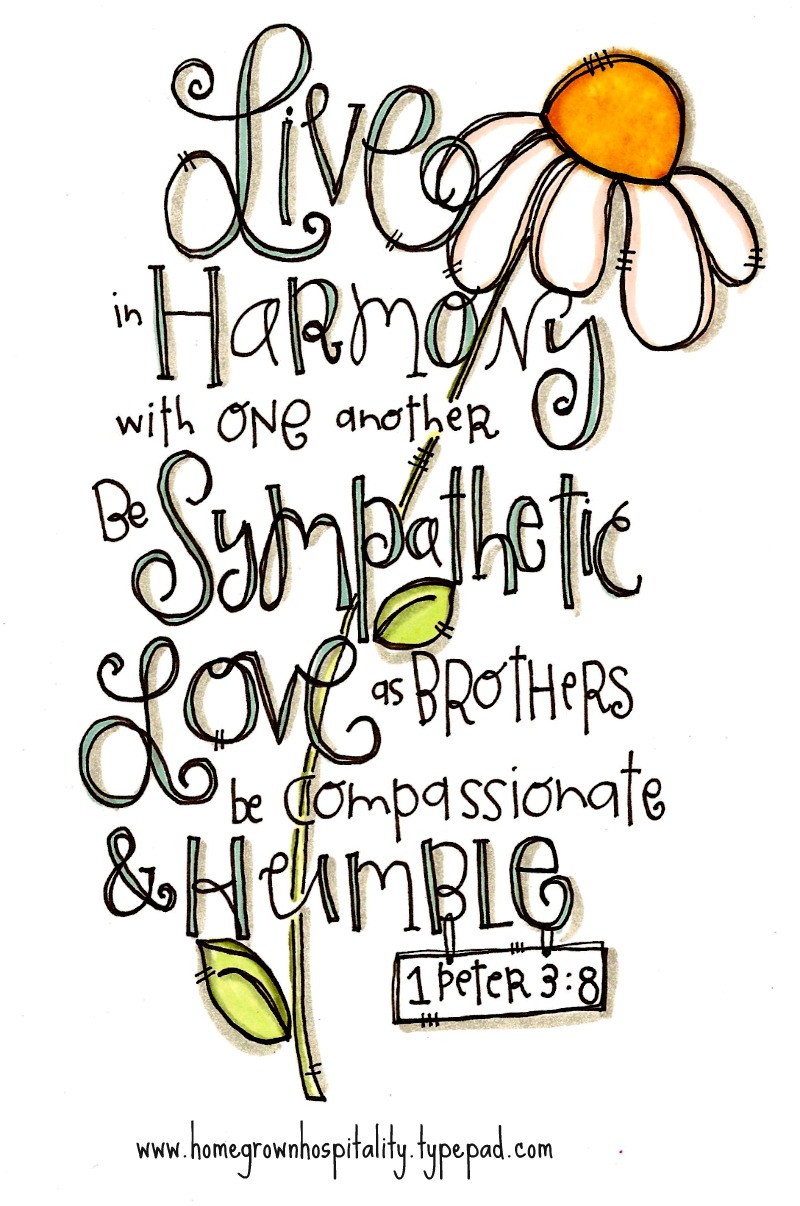 Live
in HaRMONy
with ONe another
Be Sympathetic
Love as BROtHeRS
be compassionate
& HuMBLe
1 peteR 3:8
www.homegrownhospitality.typepad.com